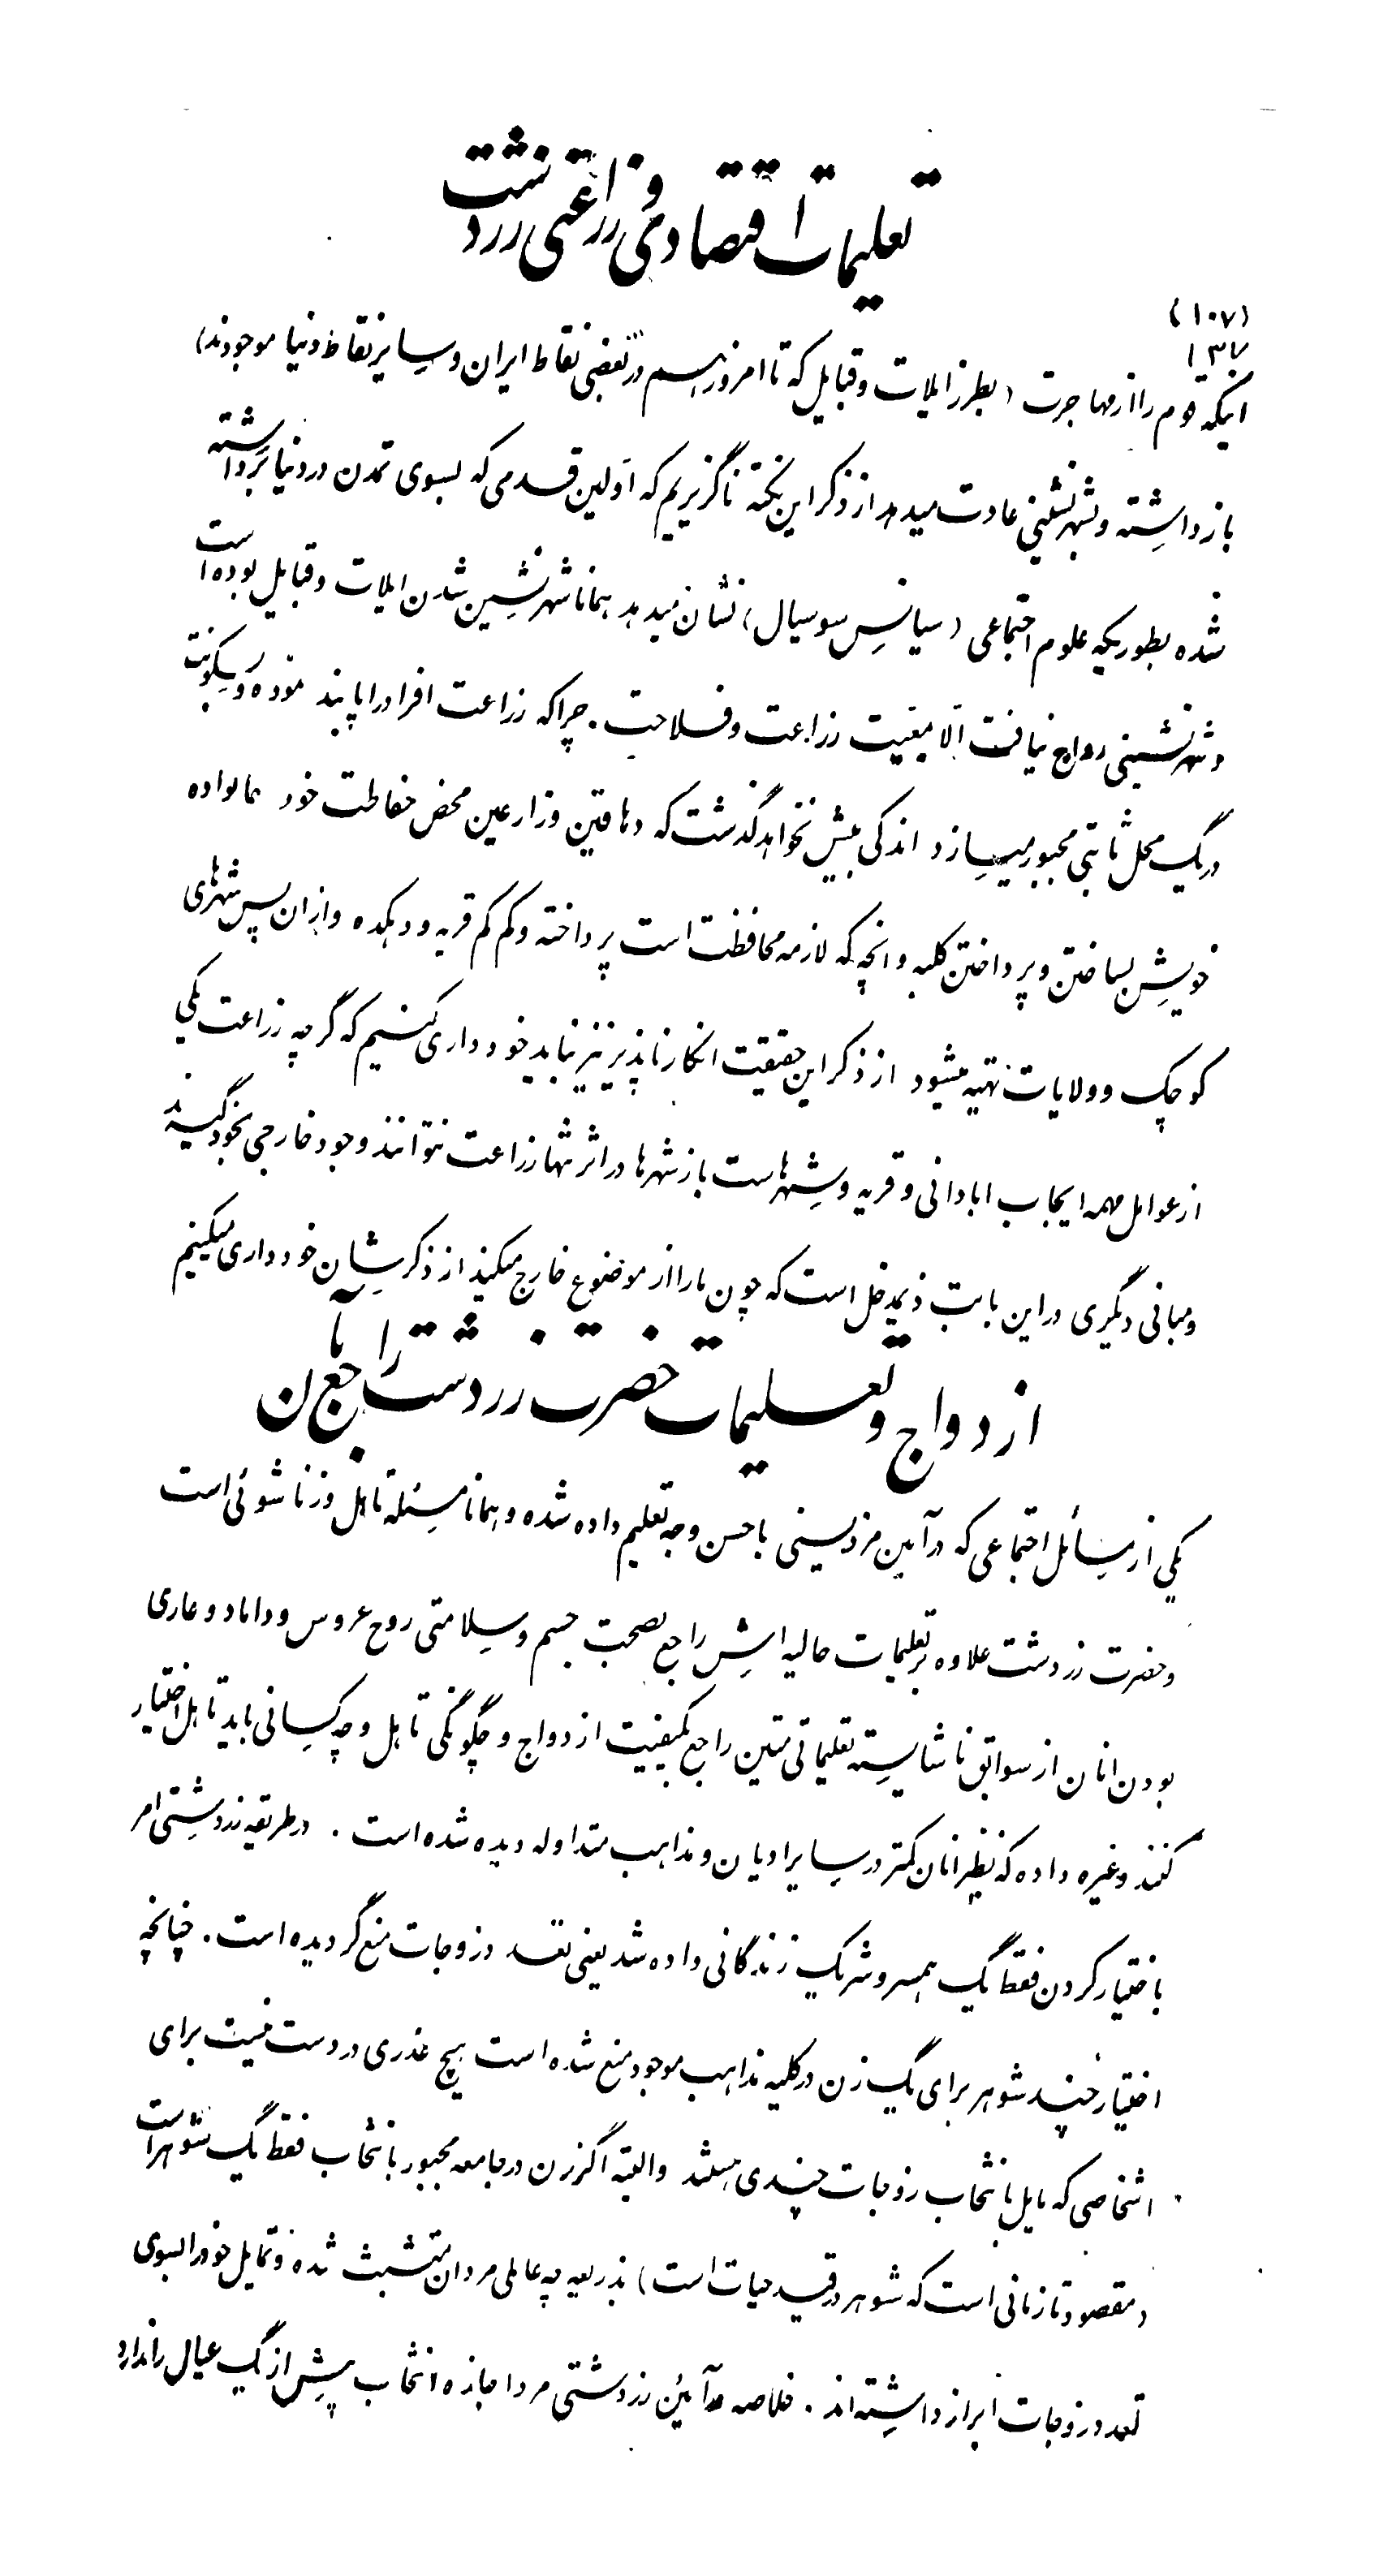 تعلیمات اقتصادی و زراعتی زردشت
(۱۰۷)
۱۳۷
اینکه قوم را از مهاجرت (بطرز ایلات و قبایل که تا امروز هم در بعضی نقاط ایران و سایر نقاط دنیا موجودند)
باز داشته و بشهرنشینی عادت میدهد از ذکر این نکته ناگزیریم که اولین قدمی که بسوی تمدن در دنیا برداشته
شده بطوریکه علوم اجتماعی (سیانس سوسیال) نشان میدهد همانا شهرنشین شدن ایلات و قبایل بوده است
و شهرنشینی رواج نیافت الا بمعیت زراعت و فلاحت. چرا که زراعت افراد را پابند نموده و بسکونت
در یک محل ثابتی مجبور میسازد اندکی بیش نخواهد گذشت که دهاقین و زارعین محض حفاظت خود و خانواده
خویش بساختن و پرداختن کلبه و انچه که لازمه محافظت است پرداخته و کم کم قریه و دهکده و از ان پس شهرهای
کوچک و ولایات تهیه میشود از ذکر این حقیقت انکار ناپذیر نیز نباید خودداری کنیم که گرچه زراعت یکی
از عوامل مهمه ایجاب ابادانی و قریه و شهرهاست باز شهرها در اثر تنها زراعت نتوانند وجود خارجی بخود گیرند
و مبانی دیگری در این بابت ذیمدخل است که چون ما را از موضوع خارج میکند از ذکرشان خودداری میکنیم
ازدواج و تعلیمات حضرت زردشت راجع بآن
یکی از مسائل اجتماعی که در آیین مزدیسنی باحسن وجه تعلیم داده شده و همانا مسئله تاهل و زناشوئی است
و حضرت زردشت علاوه بر تعلیمات عالیه اش راجع بصحت جسم و سلامتی روح عروس و داماد و عاری
بودن انان از سوابق ناشایسته تعلیماتی متین راجع بکیفیت ازدواج و چگونگی تاهل و چه کسانی باید تاهل اختیار
کنند و غیره داده که نظیر انان کمتر در سایر ادیان و مذاهب متداوله دیده شده است. در طریقه زردشتی امر
باختیار کردن فقط یک همسر و شریک زندگانی داده شد یعنی تعدد زوجات منع گردیده است. چنانچه
اختیار چند شوهر برای یک زن در کلیه مذاهب موجود منع شده است هیچ عذری در دست نیست برای
اشخاصی که مایل بانتخاب زوجات چندی هستند والبته اگر زن در جامعه مجبور بانتخاب فقط یک شوهر است
(مقصود تا زمانی است که شوهر در قید حیات است) بذریعه چه عاملی مردان متشبث شده و تمایل خود را بسوی
تعدد زوجات ابراز داشته اند. خلاصه در آئین زردشتی مرد اجازه انتخاب بیش از یک عیال را ندارد